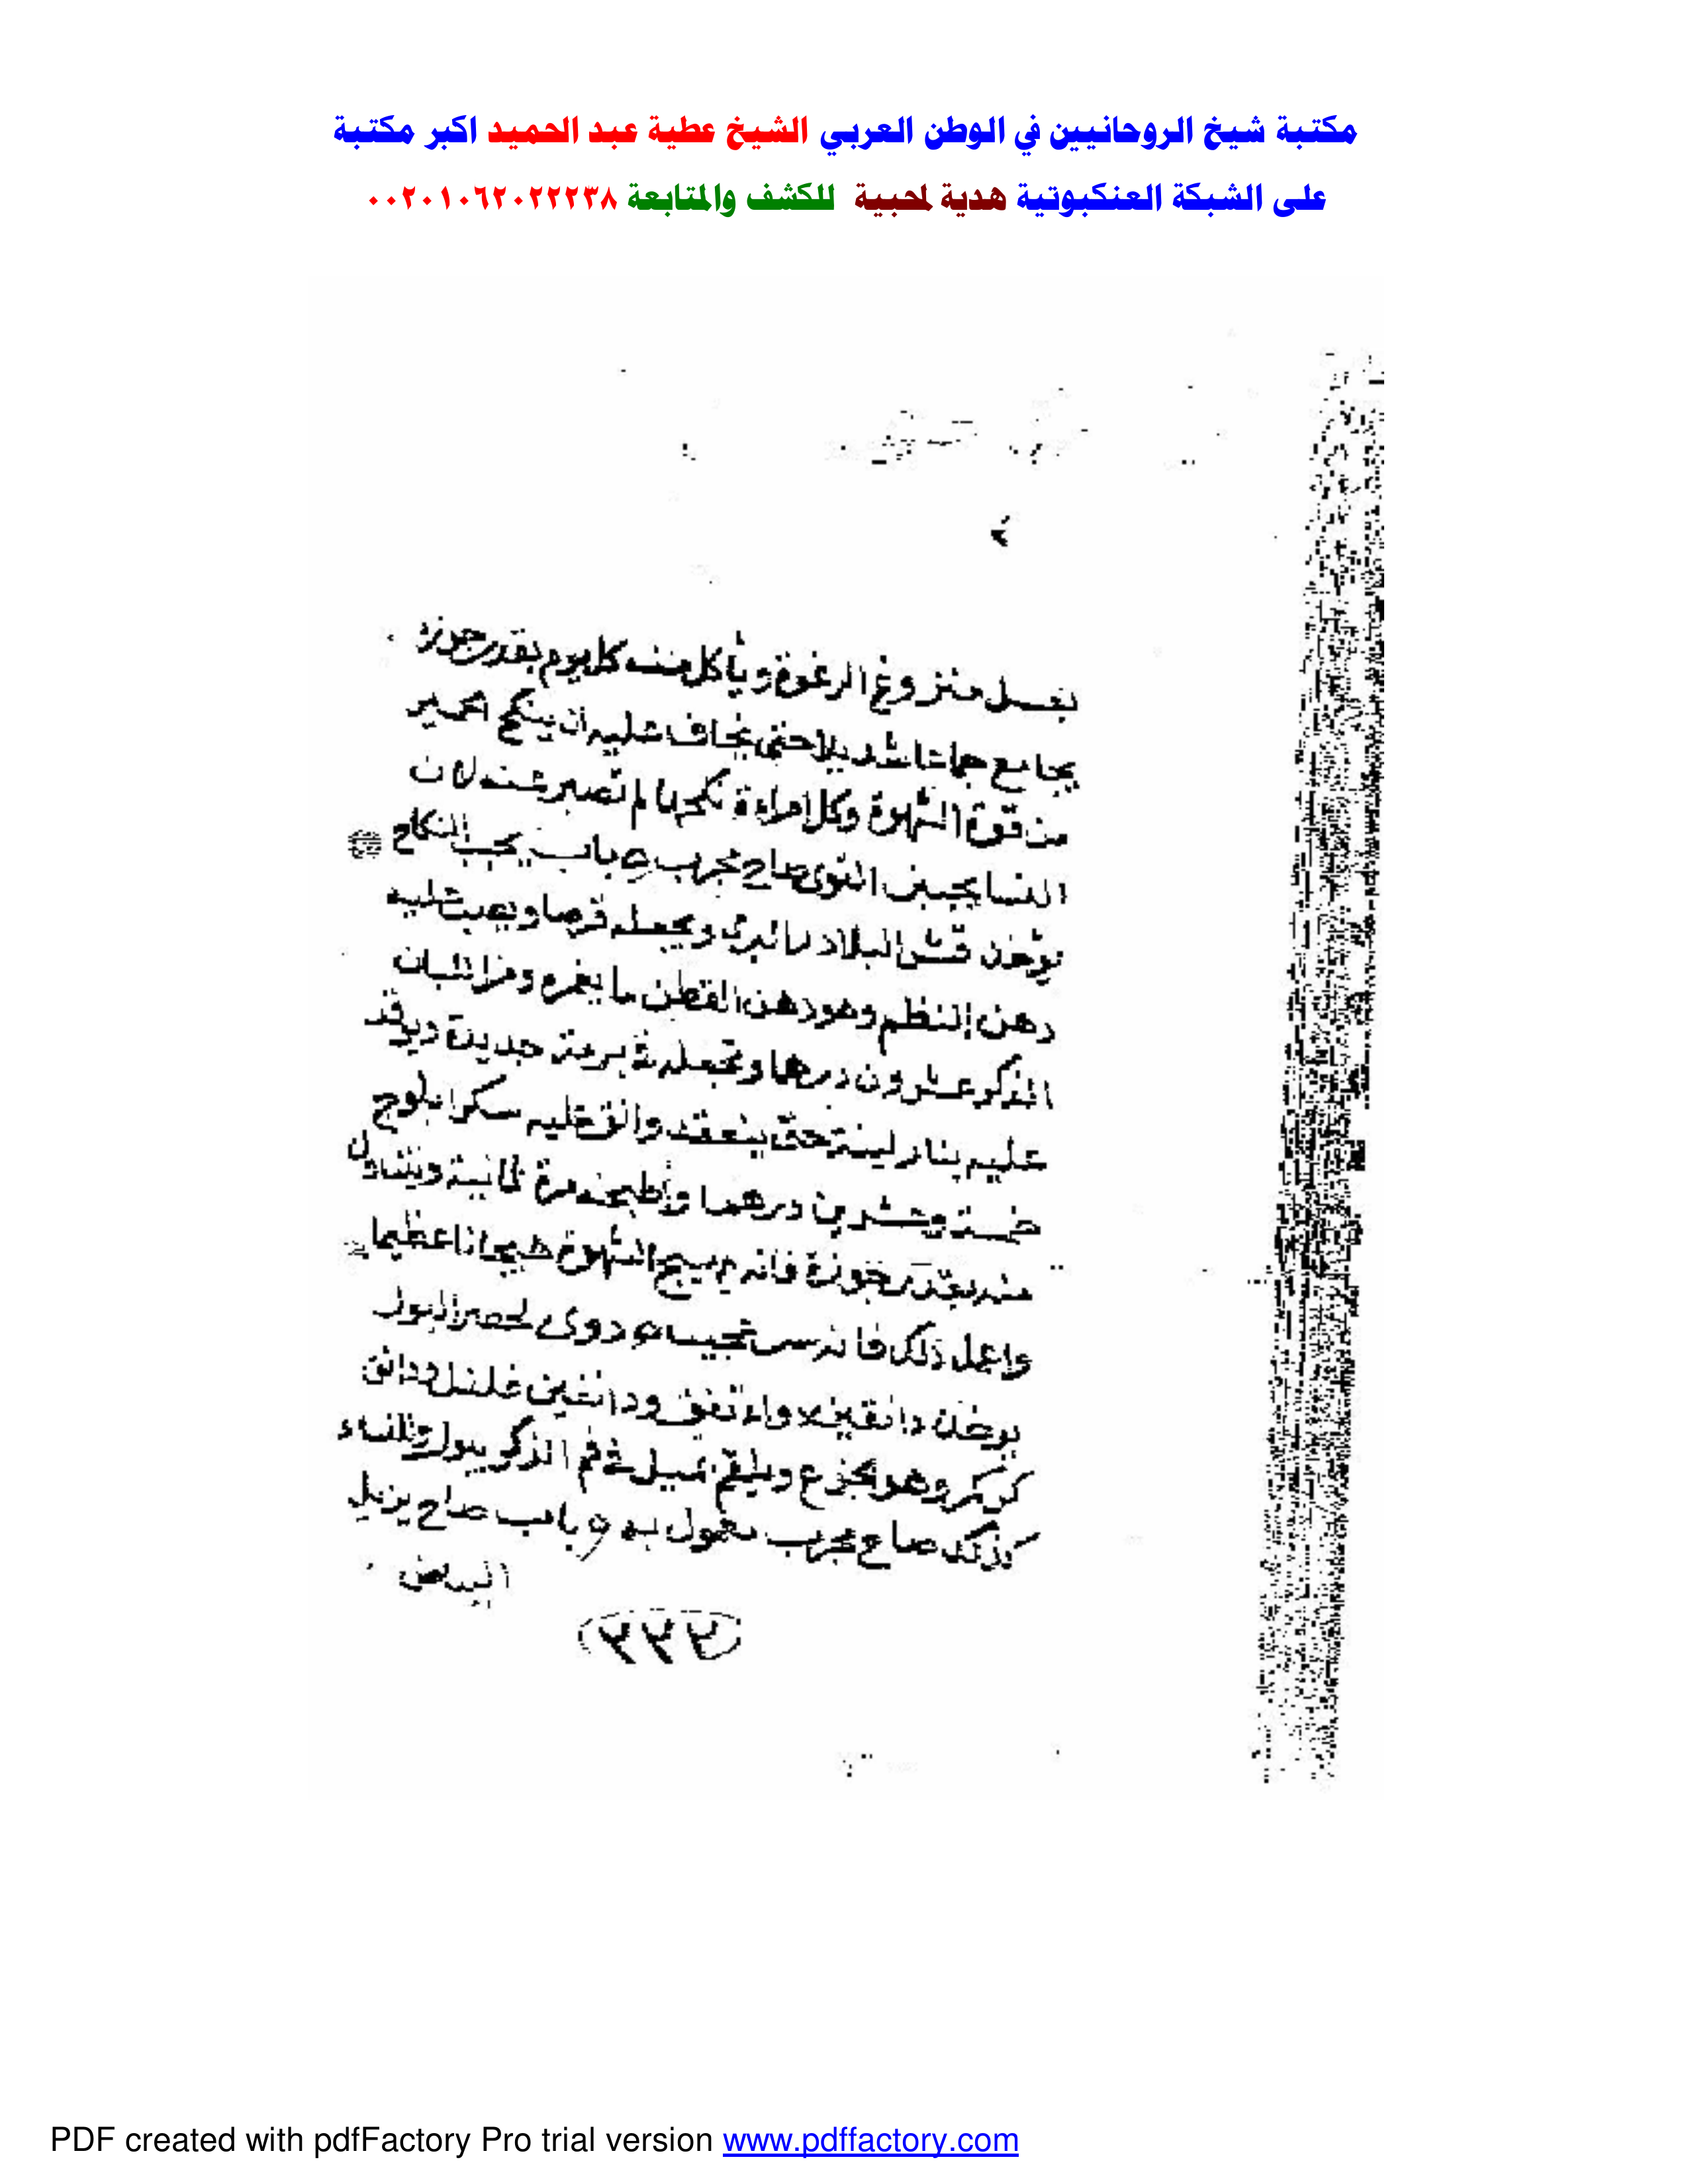 مكتبة شيخ الروحانيين في الوطن العربي الشيخ عطية عبد الحميد اكبر مكتبة
على الشبكة العنكبوتية هدية لمحبية للكشف والمتابعة ٠٠٢٠١٠٦٢٠٢٢٢٣٨
بعسل منزوع الرغوة ويأكل منه كل يوم بقدر جوزه
يجامع جماعا شديدا حتى يخاف عليه ان ينكح الحمير
من قوة الشهوة وكل امراءة نكحها لم تصبر عنه لان
النسا يحببن القوى صاح مجرب باب يحبب النكاح
يوخذ البلادر البرى ويجعله قرصا ويصب عليه
دهن وهو دهن القطن ما يغمره ومن لبان
الذكر عشرون درهما وتجعله فى برمة جديدة ويوقد
عليه بنار لينة حتى ينعقد والق عليه سكر ابلوج
خمسة وعشرين درهما واطبخه مرة ثانية ويتناول
منه بقدر جوزة فانه يهيج الشهوة هيجانا عظيما
واعمل ذلك فانه سر عجيب دوى لحصر البول
يوخذ دانقين ودانقين فلفل ودانق
وهو ويلقح بميل فى فم الذكر يبول وللنساء
كذلك صاح مجرب معمول به باب صاح يزيل
البياض
٣٣٧
PDF created with pdfFactory Pro trial version www.pdffactory.com